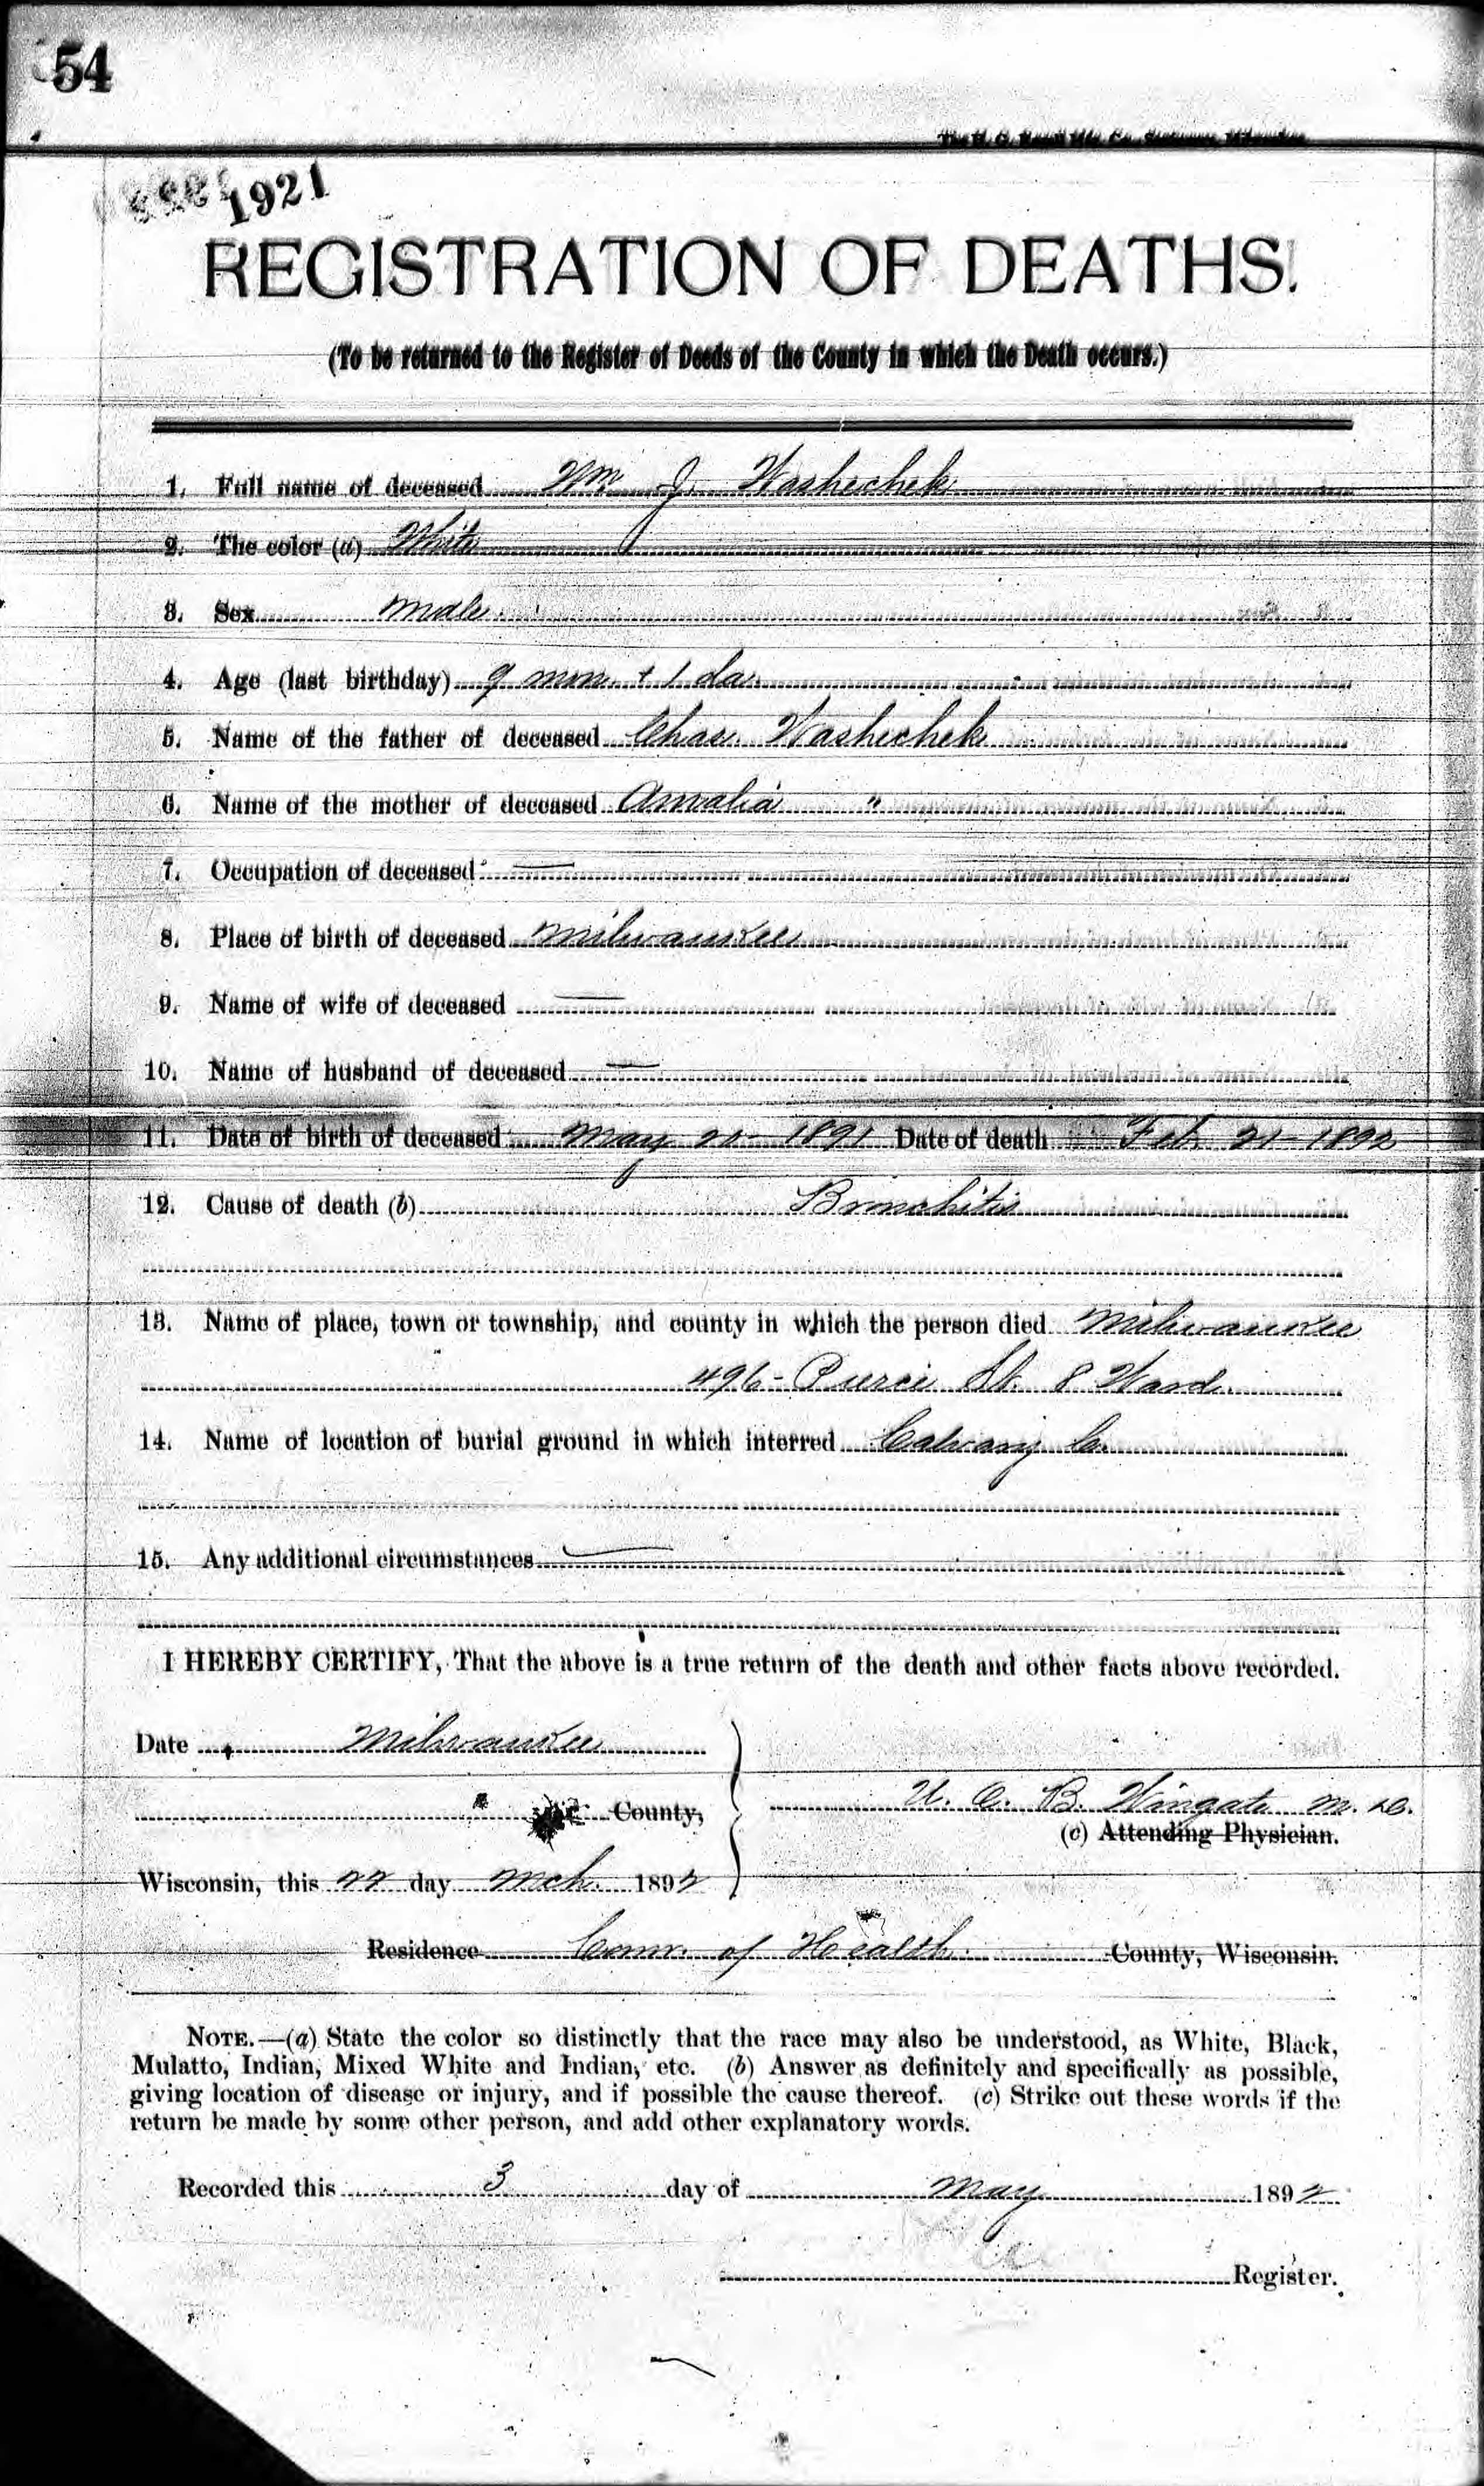 54
1921
REGISTRATION OF DEATHS.
(To be returned to the Register of Deeds of the County in which the Death occurs.)
1. Full name of deceased Wm J. Washechek
2. The color (a) White
3. Sex Male.
4. Age (last birthday) 9 mon. + 1 da.
5. Name of the father of deceased Chas. Washechek
6. Name of the mother of deceased Amalia "
7. Occupation of deceased —
8. Place of birth of deceased Milwaukee
9. Name of wife of deceased —
10. Name of husband of deceased —
11. Date of birth of deceased May 20 - 1891 Date of death Feb. 21 - 1892
12. Cause of death (b) Bronchitis
13. Name of place, town or township, and county in which the person died Milwaukee
496 - Pierce St. 8 Ward.
14. Name of location of burial ground in which interred Calvary C.
15. Any additional circumstances —
I HEREBY CERTIFY, That the above is a true return of the death and other facts above recorded.
Date Milwaukee
County,
U. O. B. Wingate M. D.
(c) Attending Physician.
Wisconsin, this 22 day Mch. 1892
Residence Comr. of Health County, Wisconsin.
NOTE.—(a) State the color so distinctly that the race may also be understood, as White, Black,
Mulatto, Indian, Mixed White and Indian, etc. (b) Answer as definitely and specifically as possible,
giving location of disease or injury, and if possible the cause thereof. (c) Strike out these words if the
return be made by some other person, and add other explanatory words.
Recorded this 3 day of May 1892
Register.